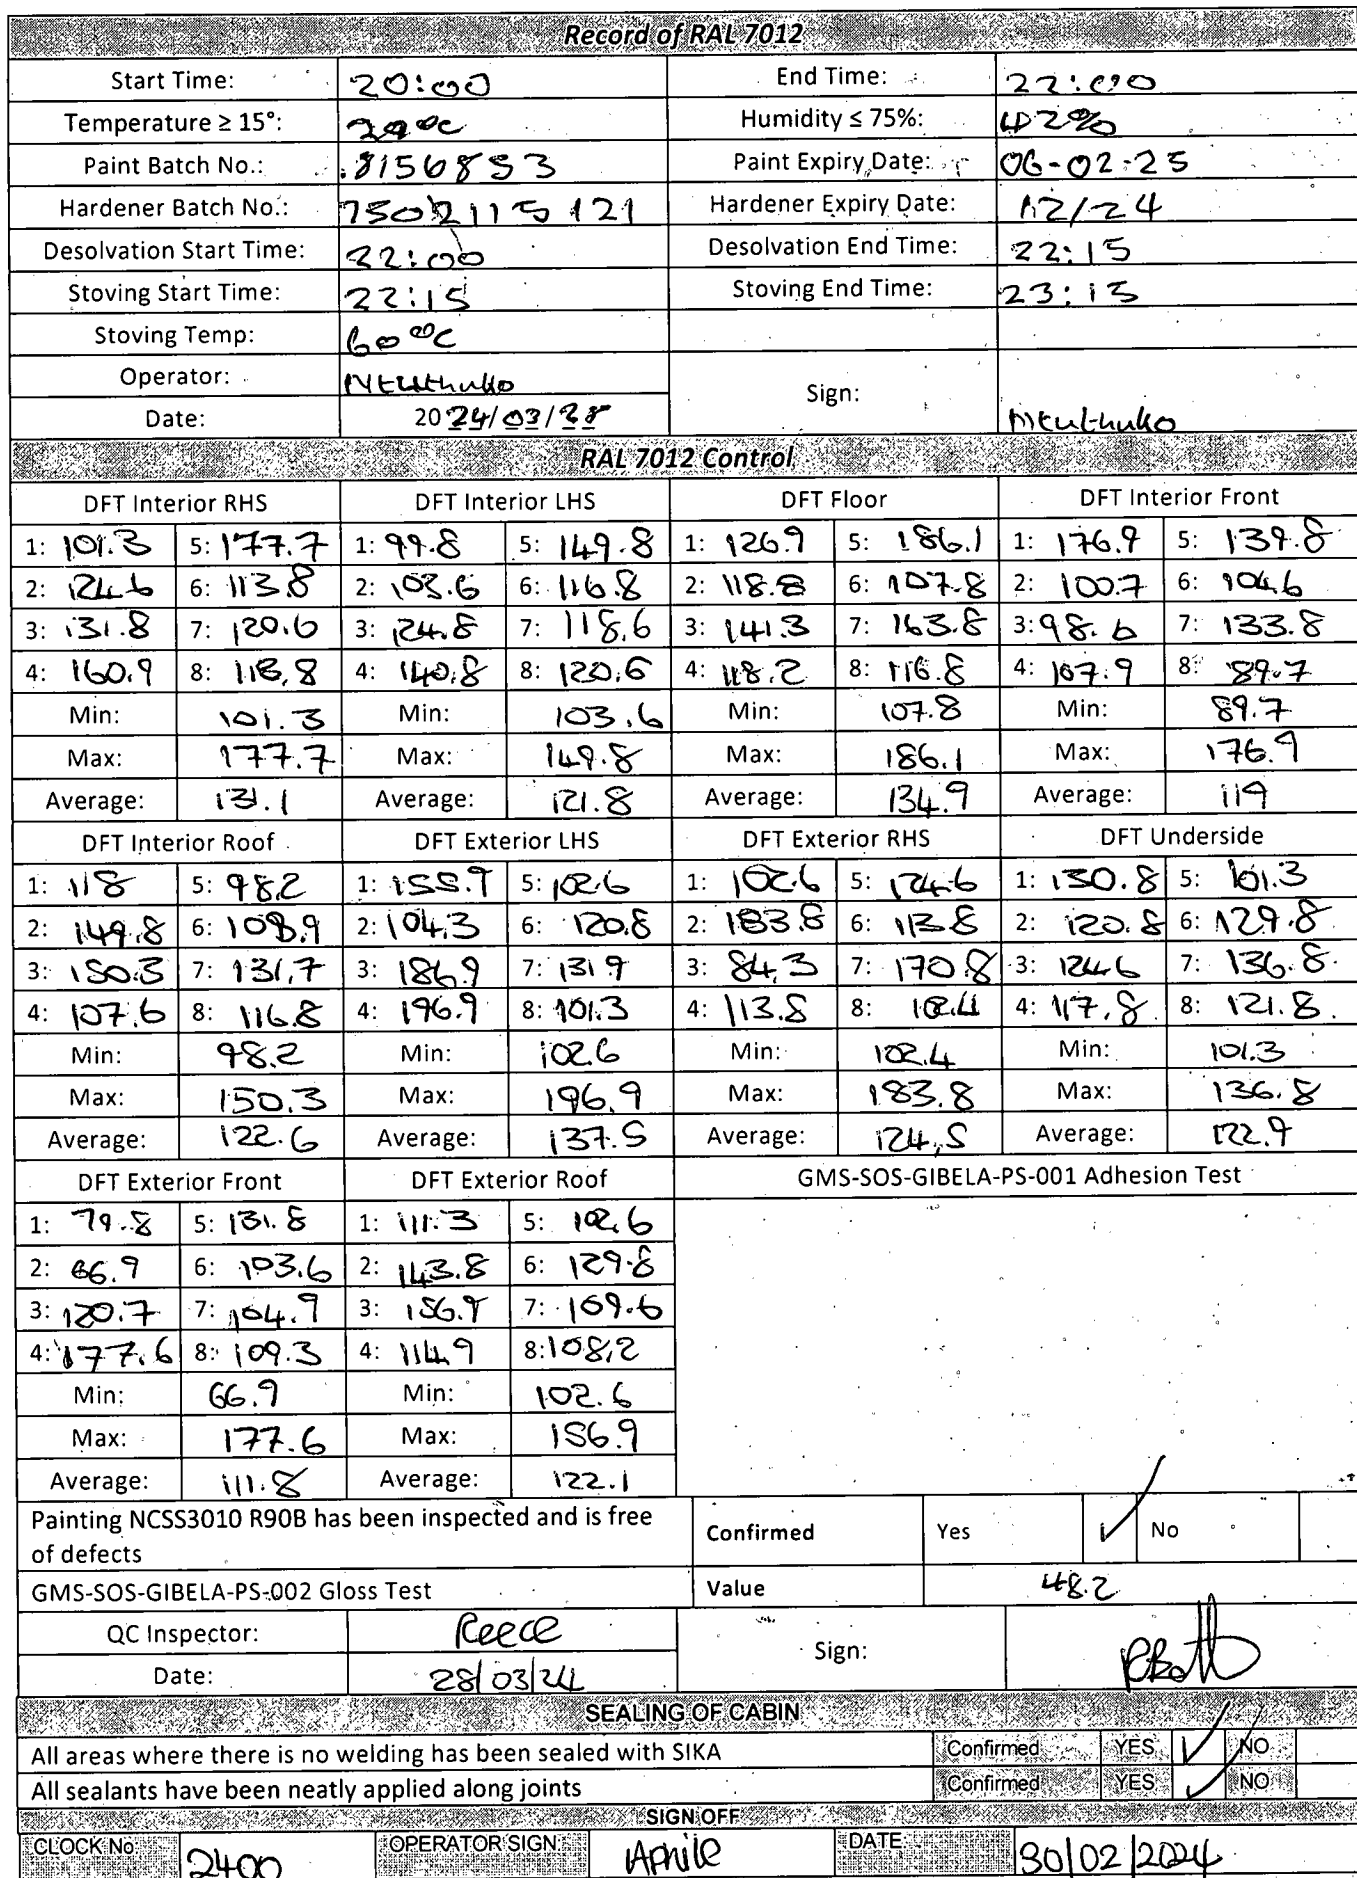 Record of RAL 7012
Start Time: 20:00 End Time: 22:00
Temperature ≥ 15°: 29°C Humidity ≤ 75%: 42%
Paint Batch No.: 8156853 Paint Expiry Date: 06-02-25
Hardener Batch No.: 7502115121 Hardener Expiry Date: 12/24
Desolvation Start Time: 22:00 Desolvation End Time: 22:15
Stoving Start Time: 22:15 Stoving End Time: 23:15
Stoving Temp: 60°C
Operator: Ntuthuko Sign: Ntuthuko
Date: 2024/03/28
RAL 7012 Control
DFT Interior RHS DFT Interior LHS DFT Floor DFT Interior Front
1: 101.3 5: 177.7 1: 99.8 5: 149.8 1: 126.9 5: 186.1 1: 176.9 5: 139.8
2: 124.6 6: 113.8 2: 103.6 6: 116.8 2: 118.8 6: 107.8 2: 100.7 6: 104.6
3: 131.8 7: 120.6 3: 124.8 7: 118.6 3: 141.3 7: 163.8 3: 98.6 7: 133.8
4: 160.9 8: 118.8 4: 140.8 8: 120.6 4: 118.2 8: 116.8 4: 107.9 8: 89.7
Min: 101.3 Min: 103.6 Min: 107.8 Min: 89.7
Max: 177.7 Max: 149.8 Max: 186.1 Max: 176.9
Average: 131.1 Average: 121.8 Average: 134.9 Average: 119
DFT Interior Roof DFT Exterior LHS DFT Exterior RHS DFT Underside
1: 118 5: 98.2 1: 155.9 5: 102.6 1: 102.6 5: 124.6 1: 130.8 5: 101.3
2: 149.8 6: 108.9 2: 104.3 6: 120.8 2: 183.8 6: 113.8 2: 120.8 6: 129.8
3: 150.3 7: 131.7 3: 186.9 7: 131.9 3: 84.3 7: 170.8 3: 124.6 7: 136.8
4: 107.6 8: 116.8 4: 196.9 8: 101.3 4: 113.8 8: 102.4 4: 117.8 8: 121.8
Min: 98.2 Min: 102.6 Min: 102.4 Min: 101.3
Max: 150.3 Max: 196.9 Max: 183.8 Max: 136.8
Average: 122.6 Average: 137.5 Average: 124.5 Average: 122.9
DFT Exterior Front DFT Exterior Roof GMS-SOS-GIBELA-PS-001 Adhesion Test
1: 79.8 5: 131.8 1: 111.3 5: 102.6
2: 66.9 6: 103.6 2: 143.8 6: 129.8
3: 120.7 7: 104.9 3: 156.9 7: 109.6
4: 177.6 8: 109.3 4: 114.9 8: 108.2
Min: 66.9 Min: 102.6
Max: 177.6 Max: 156.9
Average: 111.8 Average: 122.1
Painting NCSS3010 R90B has been inspected and is free Confirmed Yes ✓ No
of defects
GMS-SOS-GIBELA-PS-002 Gloss Test Value 48.2
QC Inspector: Reece Sign:
Date: 28/03/24
SEALING OF CABIN
All areas where there is no welding has been sealed with SIKA Confirmed YES ✓ NO
All sealants have been neatly applied along joints Confirmed YES ✓ NO
SIGN OFF
CLOCK No 2400 OPERATOR SIGN Aphile DATE 30/02/2024